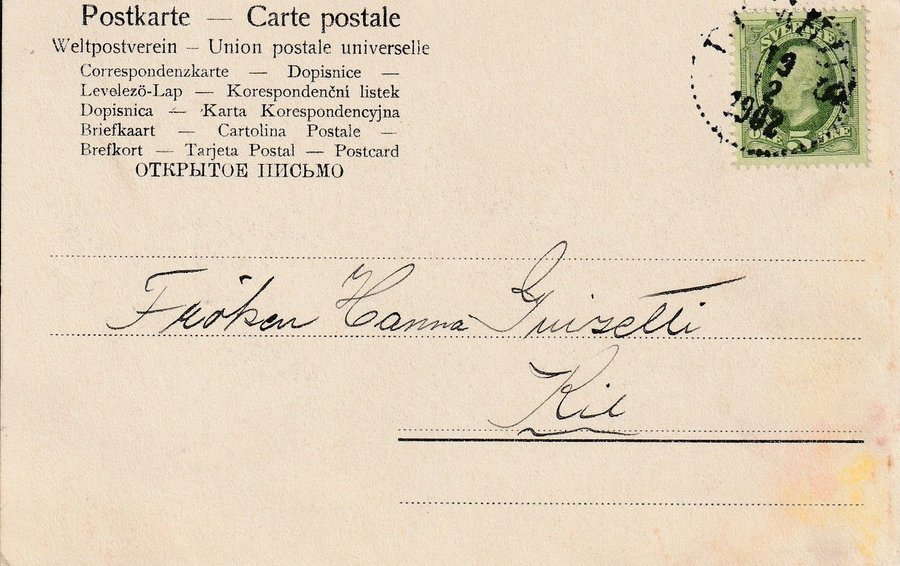 Postkarte — Carte postale
Weltpostverein – Union postale universelle
Correspondenzkarte — Dopisnice —
Levelezö-Lap — Korespondenční listek
Dopisnica — Karta Korespondencyjna
Briefkaart — Cartolina Postale —
Brefkort — Tarjeta Postal — Postcard
ОТКРЫТОЕ ПИСЬМО
19
2
1902
5
Fröken Hanna
Kil